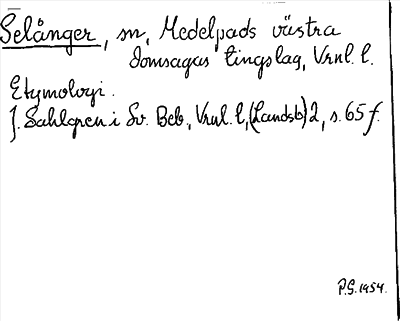 Selånger, sn, Medelpads västra
domsagas tingslag, Vrnl. l.
Etymologi.
J. Sahlgren i Sv. Beb., Vrnl. l, (Landsb) 2, s. 65 f.
P.G. 1954.